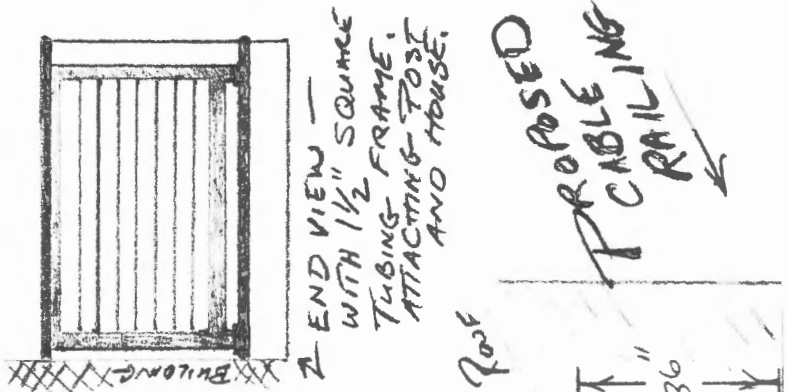 BUILDING
END VIEW —
WITH 1½" SQUARE
TUBING FRAME.
ATTACHING POST
AND HOUSE.
PROPOSED
CABLE
RAILING
ROOF